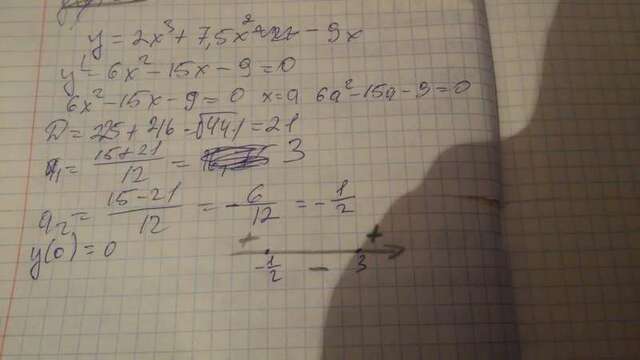 y = 2x³ + 7,5x² - 9x
y' = 6x² - 15x - 9 = 0
6x² - 15x - 9 = 0 x = a 6a² - 15a - 9 = 0
D = 225 + 216 - √441 = 21
a₁ = (15+21)/12 = 3
a₂ = (15-21)/12 = -6/12 = -1/2
y(0) = 0
+ +
-1/2 - 3